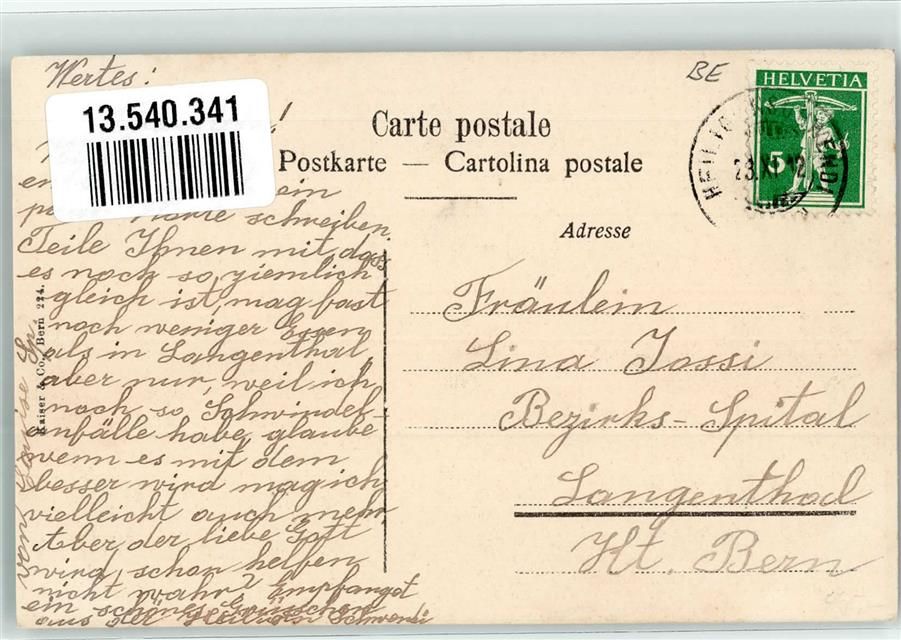 Wertes:
13.540.341
!
en ein
schreiben,
Teile Ihnen mit dass
es noch so ziemlich
gleich ist, mag fast
noch weniger Essen
als in Langenthal,
aber nur, weil ich
noch so Schwindel-
anfälle habe, glaube
wenn es mit dem
besser wird mag ich
vielleicht auch mehr,
Aber der liebe Gott
wird schon helfen
nicht wahr? Empfangat
ein schönes Grüsschen
aus der Schwendi
Kaiser & Co., Bern 224.
Carte postale
Postkarte — Cartolina postale
Adresse
BE
HELVETIA
5
23.XI.12
Fräulein
Lina Jossi
Bezirks-Spital
Langenthal
Kt. Bern